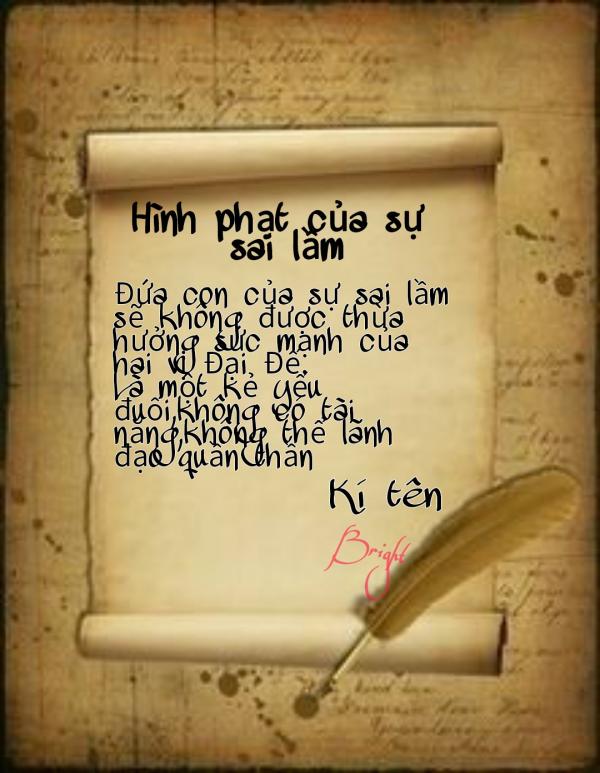 Hình phạt của sự
sai lầm
Đứa con của sự sai lầm
sẽ không được thừa
hưởng sức mạnh của
hai vị Đại Đế.
Là một kẻ yếu
đuối,không có tài
năng,không thể lãnh
đạo quần thần
Kí tên
Bright